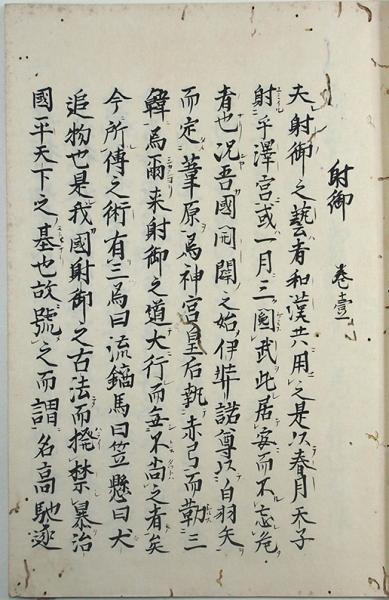 射御 巻壹
夫射御之藝者和漢共用之是以春月天子
射乎澤宮或一月三閲武此居安而不忘危
者也况吾國開闢之始伊弉諾尊以白羽矢
而定葦原焉神宮皇后執赤弓而勒三
韓焉爾来射御之道大行而無不尚之者矣
今所傳之術有三焉曰流鏑馬曰笠懸曰犬
追物也是我國射御之古法而撥禁暴治
國平天下之基也故號之而謂名高馳逐